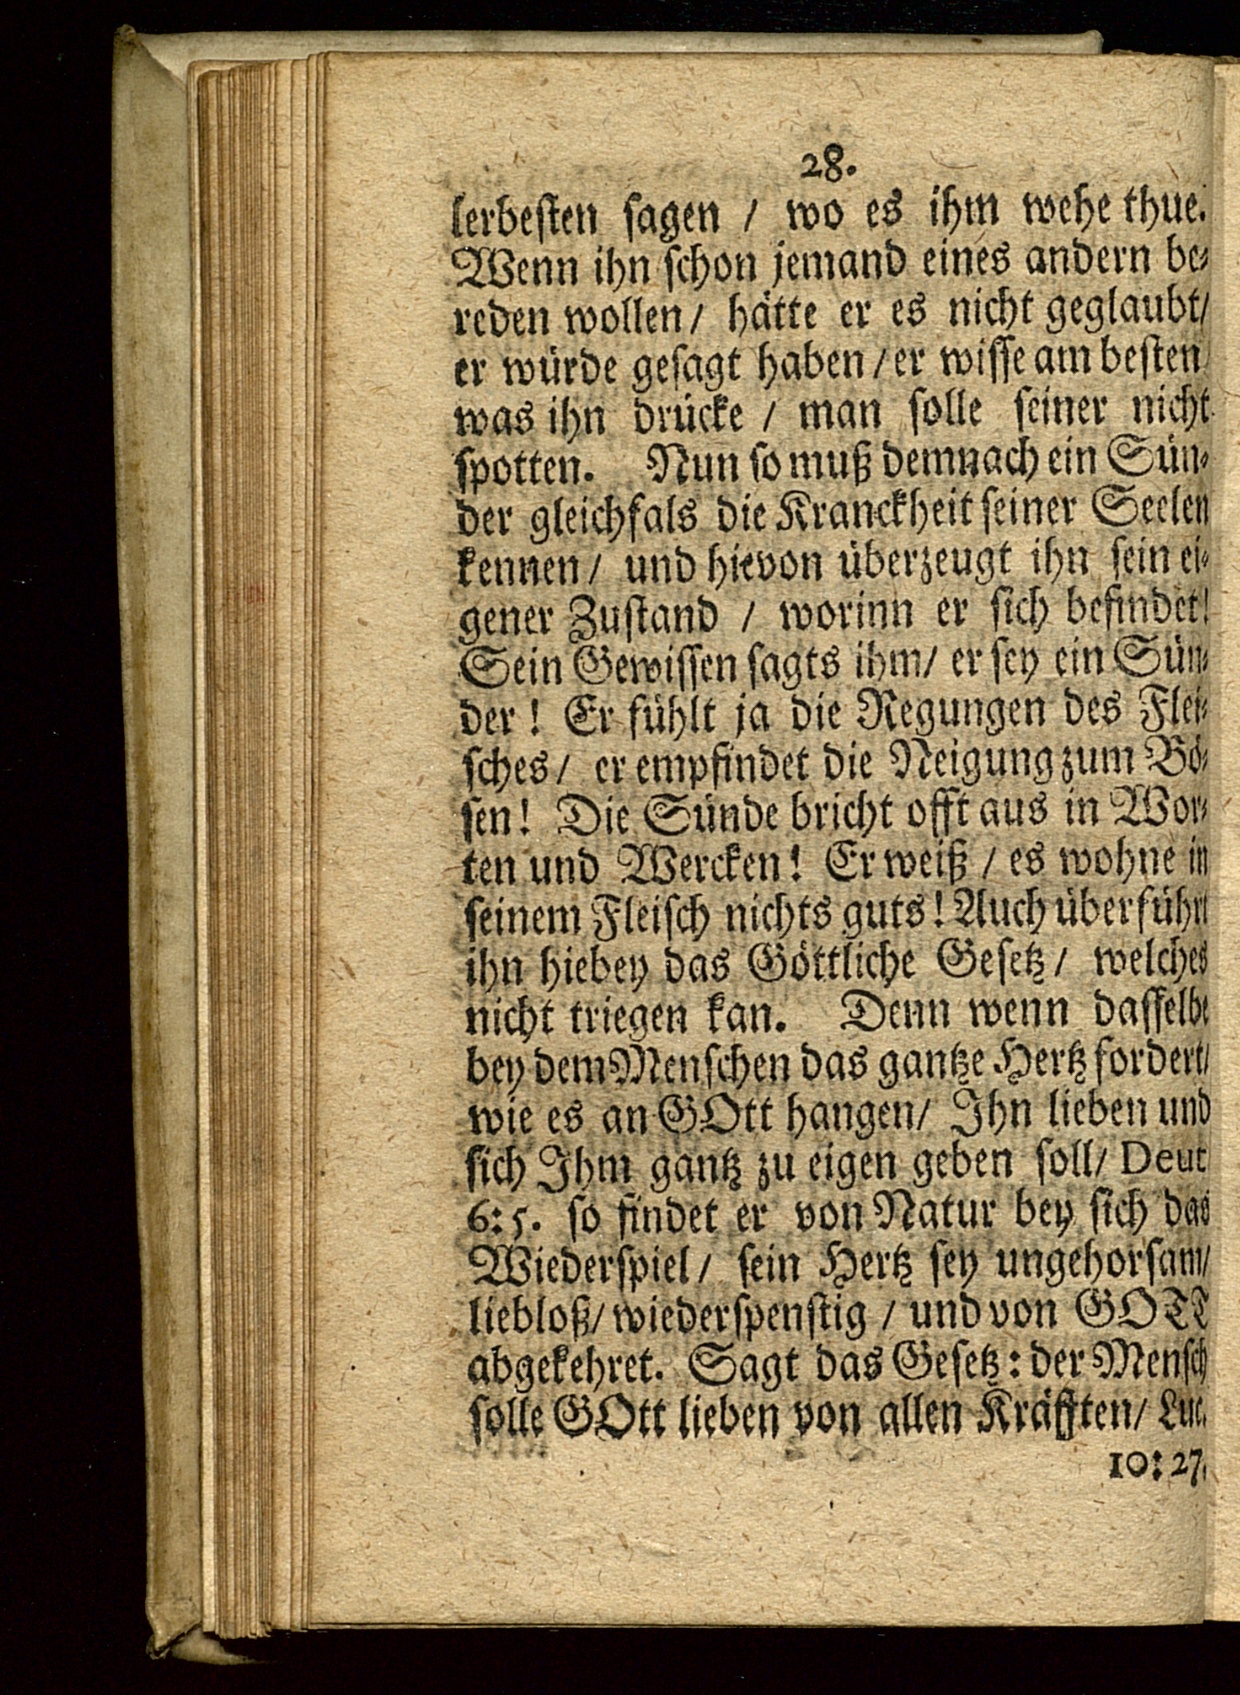 28.
lerbesten sagen / wo es ihm wehe thue.
Wenn ihn schon jemand eines andern be-
reden wollen / hätte er es nicht geglaubt/
er würde gesagt haben / er wisse am besten
was ihn drücke / man solle seiner nicht
spotten. Nun so muß demnach ein Sün-
der gleichfals die Kranckheit seiner Seelen
kennen / und hievon überzeugt ihn sein ei-
gener Zustand / worinn er sich befindet!
Sein Gewissen sagts ihm/ er sey ein Sün-
der! Er fühlt ja die Regungen des Flei-
sches / er empfindet die Neigung zum Bö-
sen! Die Sünde bricht offt aus in Wor-
ten und Wercken! Er weiß / es wohne in
seinem Fleisch nichts guts! Auch überführt
ihn hiebey das Göttliche Gesetz / welches
nicht triegen kan. Denn wenn dasselbe
bey dem Menschen das gantze Hertz fordert/
wie es an GOtt hangen/ Ihn lieben und
sich Ihm gantz zu eigen geben soll/ Deut
6:5. so findet er von Natur bey sich das
Wiederspiel / sein Hertz sey ungehorsam/
liebloß/ wiederspenstig / und von GOTT
abgekehret. Sagt das Gesetz: der Mensch
solle GOtt lieben von allen Kräfften/ Luc.
10:27.